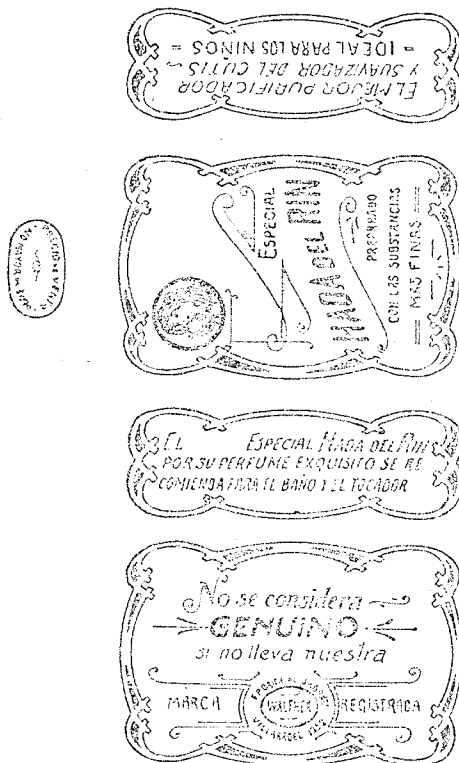 EL MEJOR PURIFICADOR
Y SUAVIZADOR DEL CUTIS
= IDEAL PARA LOS NIÑOS =
ESPECIAL
HADA DEL RIN
PREPARADO
CON LAS SUBSTANCIAS
MAS FINAS
EL ESPECIAL HADA DEL RIN
POR SU PERFUME EXQUISITO SE RE
COMIENDA PARA EL BAÑO Y EL TOCADOR
No se considera
GENUINO
si no lleva nuestra
MARCA WALTHER REGISTRADA